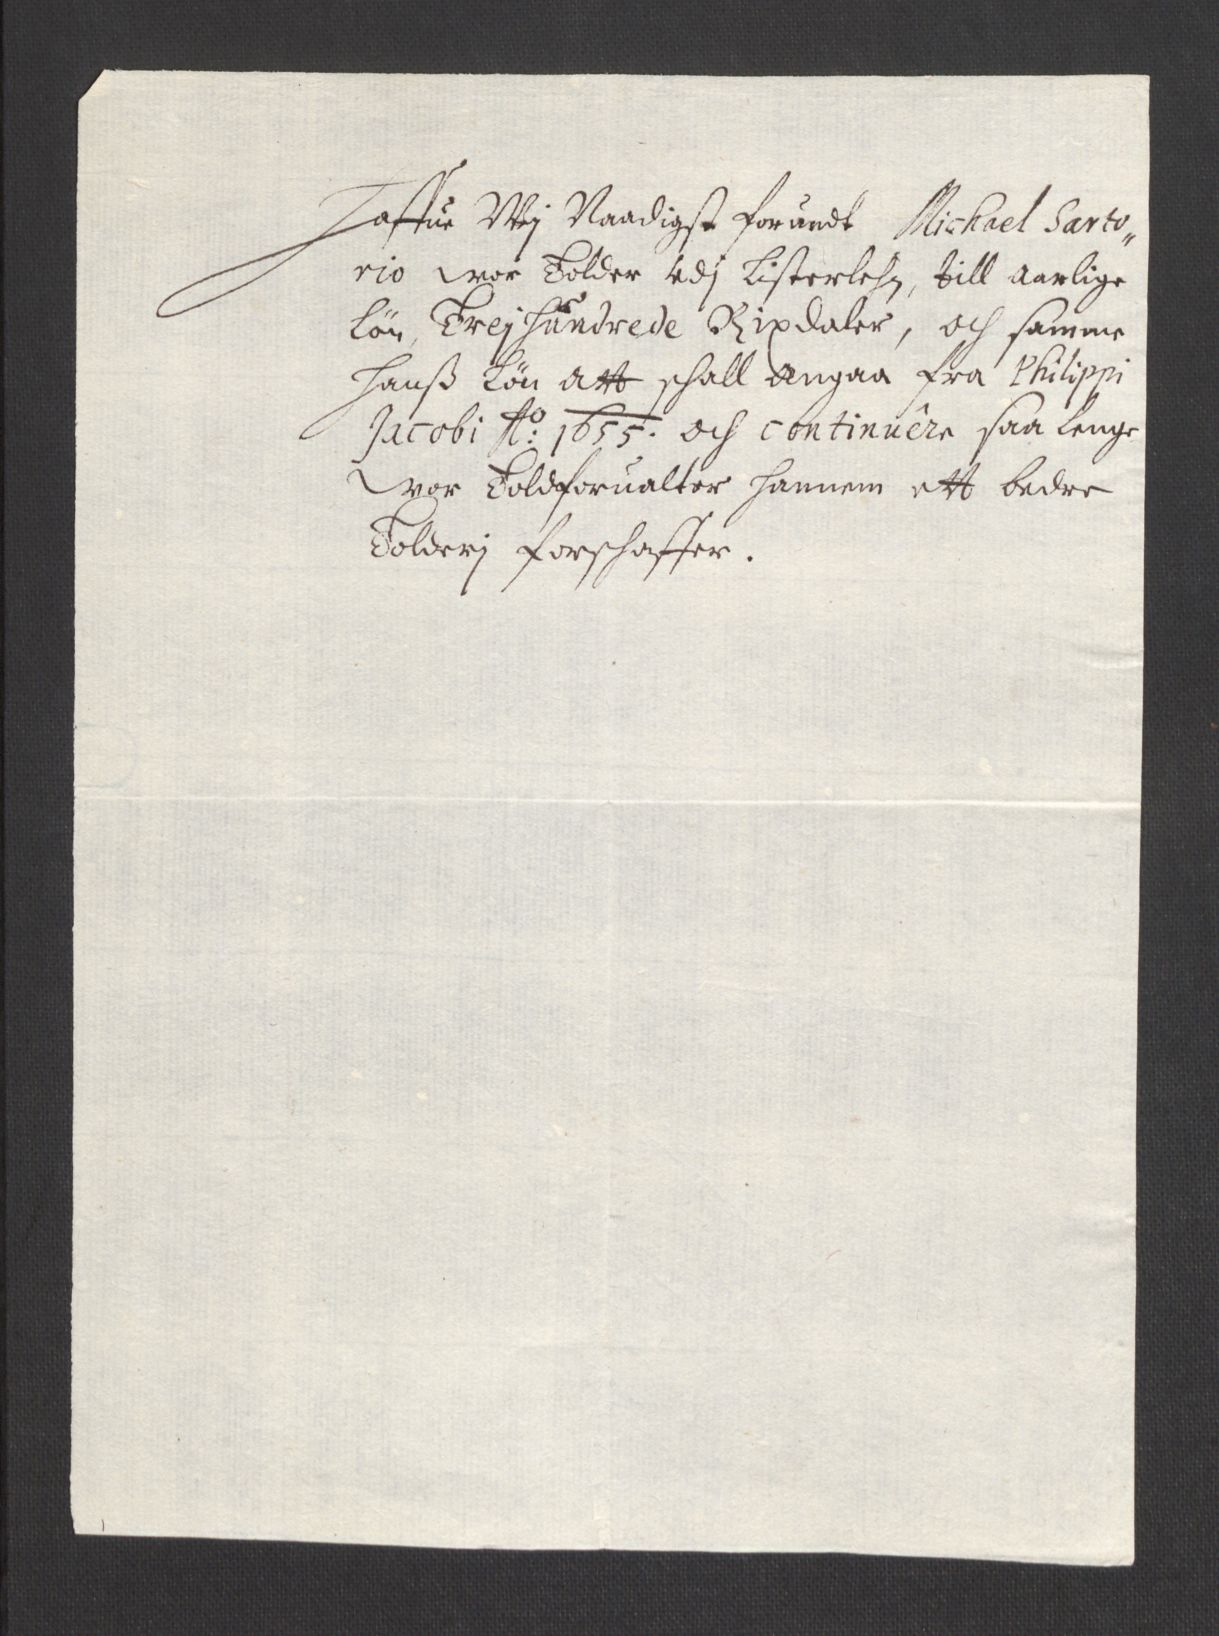 Haffue Wej Naadigst forundt Michael Sarto„
rio vor Tolder udj Listerlehn, till aarlige
Løn, Trejhundrede Rixdaler, och samme
hanß Løn att schall angaa fra Philippi
Jacobi Ao: 1655. och continuêre saa lenge
vor Toldforualter hannem ett bedre
Tolderj forschaffer.